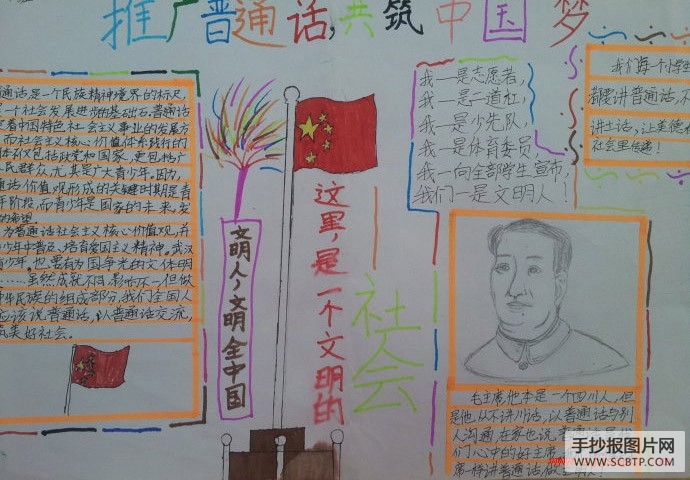 推广普通话,共筑中国梦
通话是一个民族精神境界的标尺,
一个社会发展进步的基础石。普通话
着中国特色社会主义事业的发展方
而社会主义核心价值体系践行的
体不仅包括政党和国家,更包括广
民群众,尤其是广大青少年,因为,
通话价值观形成的关键时期是青
年阶段,而青少年是国家的未来,发
的希望
为普通话社会主义核心价值观,并
青少年中普及,培育爱国主义精神。武汉
青少年。也要有为国争光的文体明
……虽然成就不同影响不一但做
中华民族的组成部分,我们全国人
应该说普通话,以普通话交流,
筑美好社会。
文明人,文明全中国
这里,是一个文明的
社会
我一是志愿者,
我一是二道杠,
我一是少先队,
我一是体育委员,
我一向全部学生宣布,
我们一是文明人!
我们每个小学生
都要讲普通话,不
讲土话,让美德在
社会里传递!
毛主席,他本是一个四川人,但
是他从不讲川话,以普通话与别
人沟通,在家也说
们心中的好主席
第一样讲普通话,做
手抄报图片网
WWW.SCBTP.COM